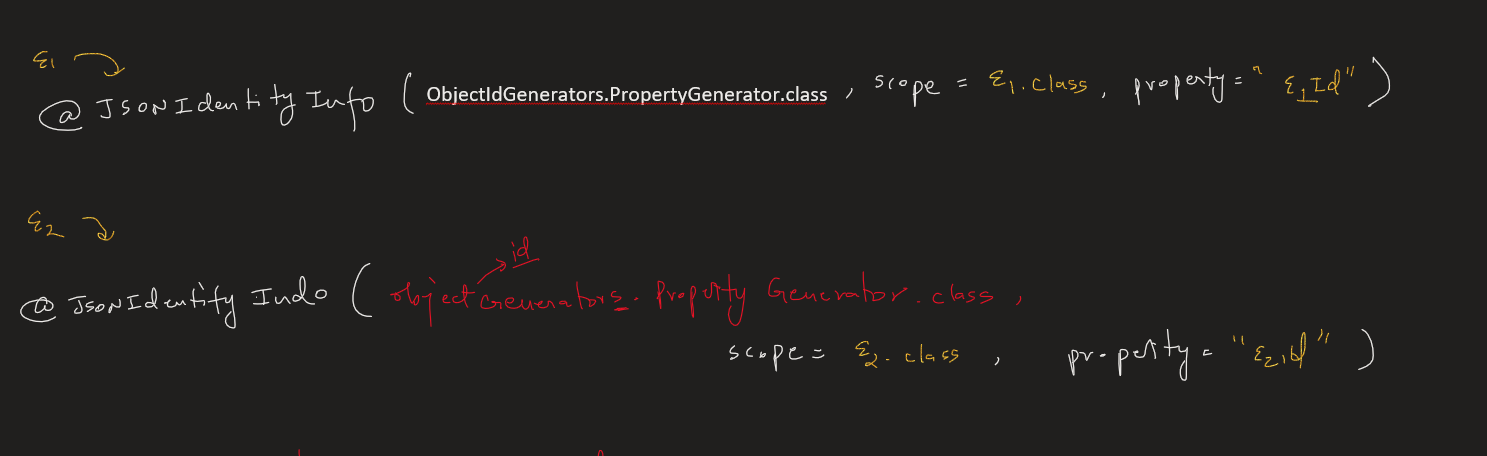 ε1
@ JsonIdentityInfo ( ObjectIdGenerators.PropertyGenerator.class , scope = ε1.class , property = " ε1Id" )
ε2
id
@ JsonIdentify Indo ( object Generators . Property Generator . class ,
scope = ε2 . class , property = "ε2Id" )